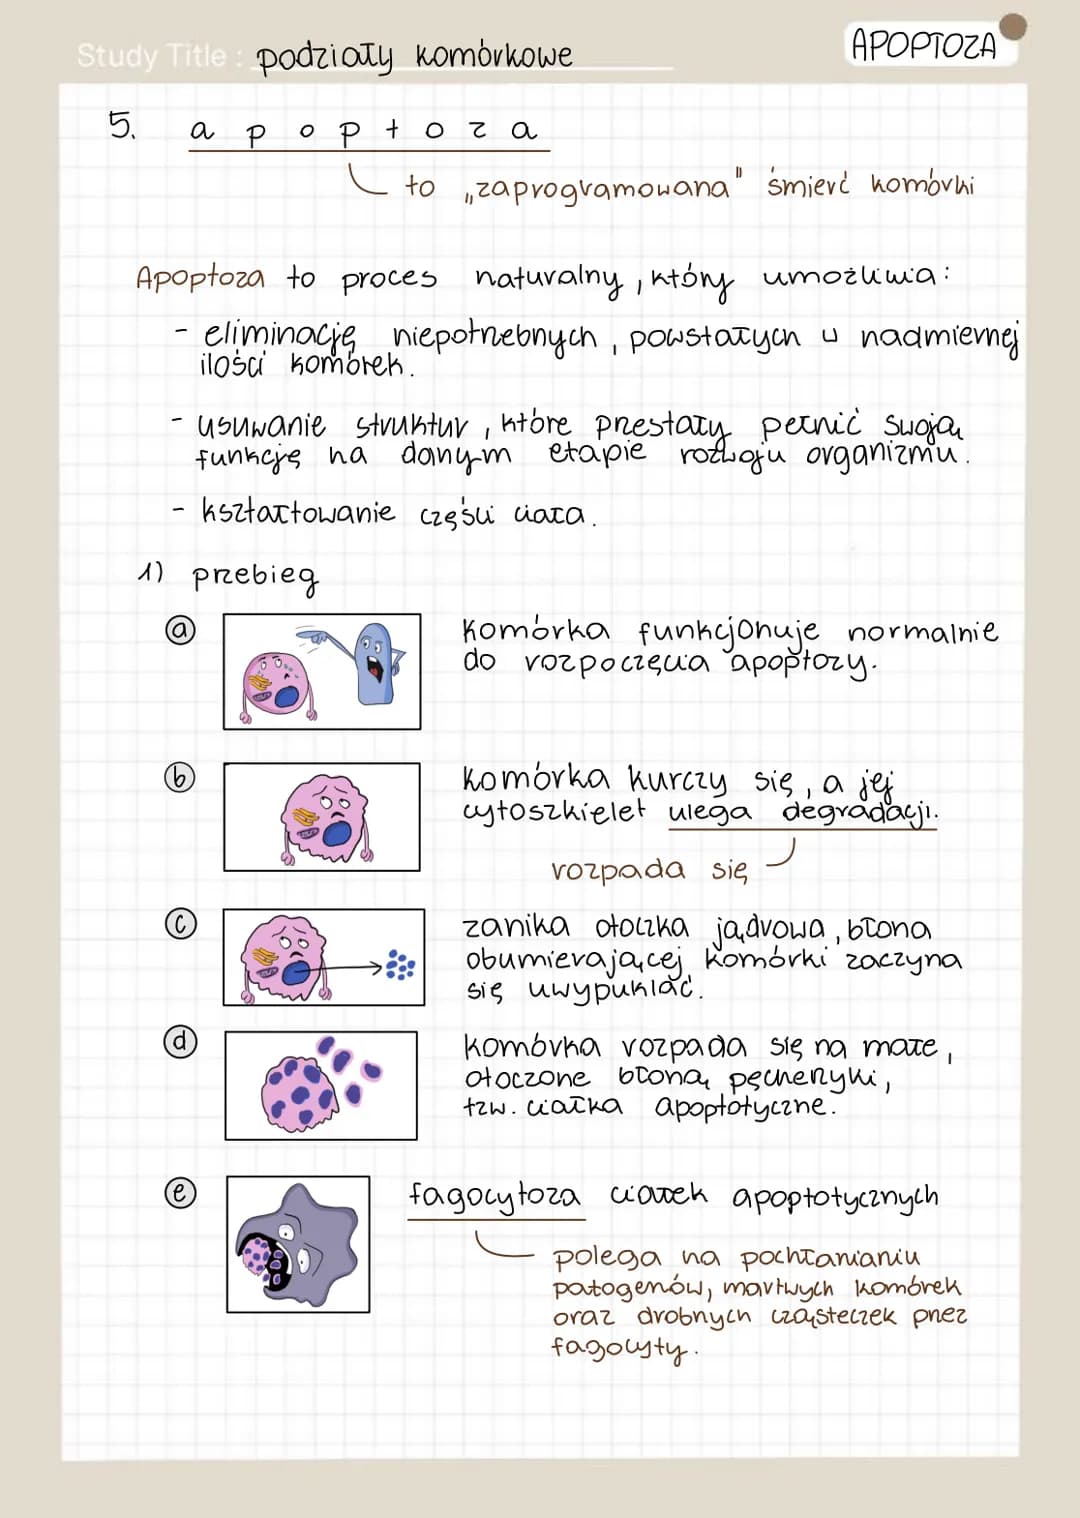 Study Title : podziały komórkowe
APOPTOZA
5. apoptoza
to „zaprogramowana" śmierć komórki
Apoptoza to proces naturalny, który umożliwia:
- eliminację niepotrzebnych, powstałych w nadmiernej
ilości komórek.
- usuwanie struktur, które przestały pełnić swoją
funkcję na danym etapie rozwoju organizmu.
- kształtowanie części ciała.
1) przebieg
a
komórka funkcjonuje normalnie
do rozpoczęcia apoptozy.
b
komórka kurczy się, a jej
cytoszkielet ulega degradacji.
rozpada się
c
zanika otoczka jądrowa, błona
obumierającej komórki zaczyna
się uwypuklać.
d
komórka rozpada się na małe,
otoczone błoną pęcherzyki,
tzw. ciałka apoptotyczne.
e
fagocytoza ciałek apoptotycznych
polega na pochłanianiu
patogenów, martwych komórek
oraz drobnych cząsteczek przez
fagocyty.